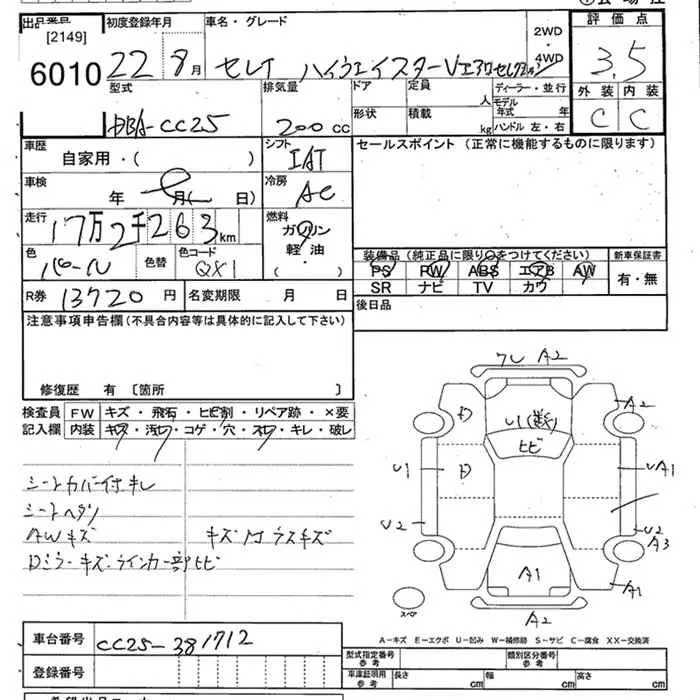 出品番号
[2149]
6010
初度登録年月
22 8月
車名・グレード
セレナ ハイウェイスターVエアロセレクション
2WD
・
4WD
評価点
3.5
外装 内装
C C
型式
DBA-CC25
排気量
200cc
ドア
形状
定員 人
積載 kg
ディーラー・並行
モデル年式 年
ハンドル 左・右
車歴
自家用・( )
シフト
IAT
セールスポイント (正常に機能するものに限ります)
車検
年 月( 日)
冷房
AC
走行
17万2千263km
燃料
ガソリン
軽油
( )
色
パール
色替
色コード
QX1
装備品(純正品に限り○をつけてください)
新車保証書
PS PW ABS エアB AW
SR ナビ TV カワ
有・無
R券 13720円
名変期限 月 日
後日品
注意事項申告欄(不具合内容等は具体的に記入して下さい)
修復歴 有 〔箇所 〕
検査員 FW キズ・飛石・ヒビ割・リペア跡・×要
記入欄 内装 キズ・汚レ・コゲ・穴・スレ・キレ・破レ
シートカバー付キレ
シートヘタリ
AWキズ
キズ ガラスキズ
Dミラーキズ・ウインカー部ヒビ
ワレ A2
A2
U1
ヒビ
U1
UA1
U2
U2
A3
A1
A1
A2
スペア
A-キズ E-エクボ U-凹み W-補修跡 S-サビ C-腐食 XX-交換済
車台番号 CC25-381712
登録番号
型式指定番号
参考
類別区分番号
参考
車庫証明用
参考
長さ cm 幅 cm 高さ cm